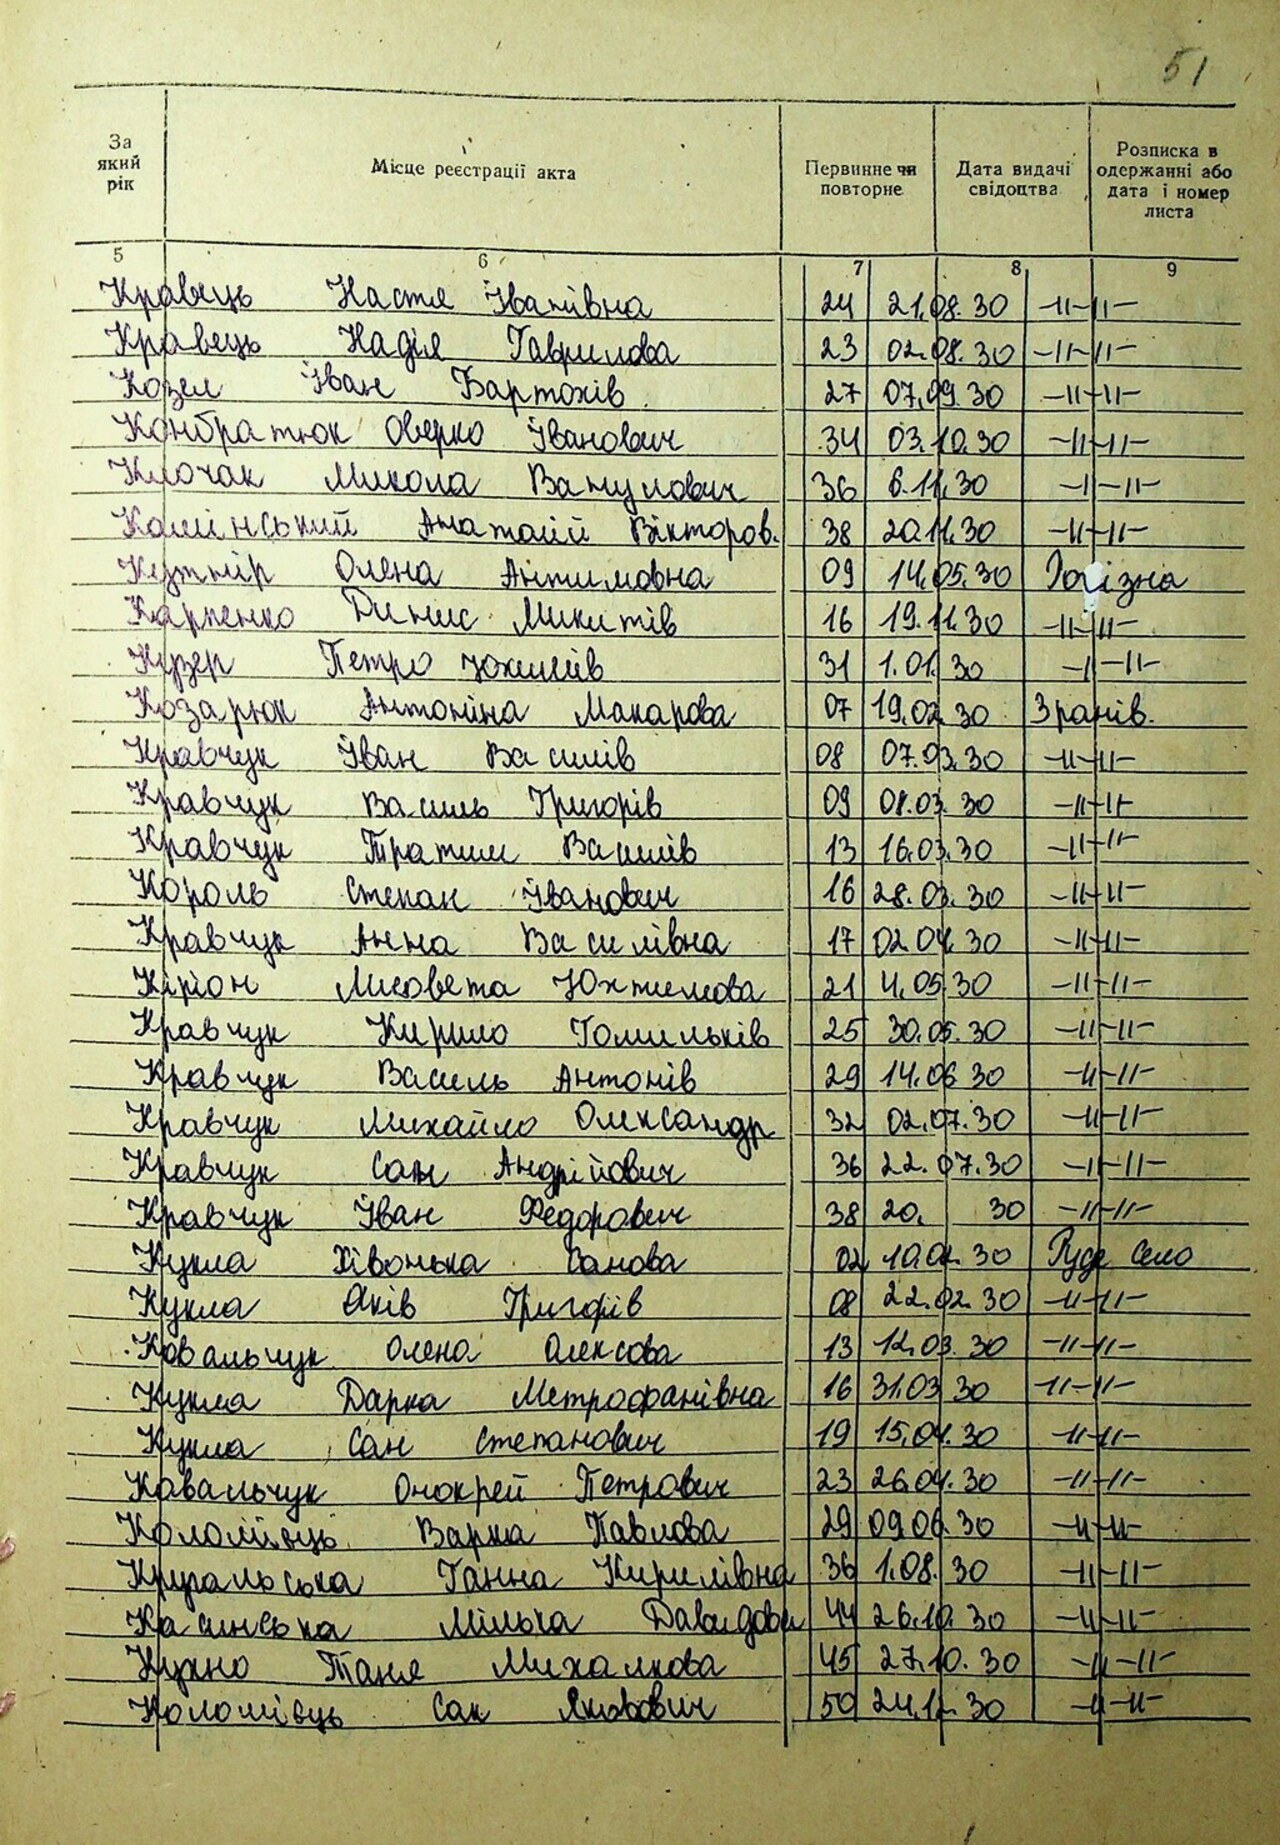 51
За який рік Місце реєстрації акта Первинне чи повторне Дата видачі свідоцтва Розписка в одержанні або дата і номер листа
5 6 7 8 9
Кравець Настя Іванівна 24 21.08.30 -"-"-
Кравець Надія Гаврилова 23 02.08.30 -"-"-
Козел Іван Бартохів 27 07.09.30 -"-"-
Кондратюк Оверко Іванович 34 03.10.30 -"-"-
Клочак Микола 36 6.11.30 -"-"-
Камінський Анатолій Вікторов. 38 20.11.30 -"-"-
Олена Антимовна 09 14.05.30
Карпенко Динис Микитів 16 19.11.30 -"-"-
Кузер Петро Юхимів 31 1.01.30 -"-"-
Козарюк Антоніна Макарова 07 19.02.30
Кравчук Іван Василів 08 07.03.30 -"-"-
Кравчук Василь Григорів 09 08.03.30 -"-"-
Кравчук Тратим Василів 13 16.03.30 -"-"-
Король Степан Іванович 16 28.03.30 -"-"-
Кравчук Анна Василівна 17 02.04.30 -"-"-
Кіріон Лисовета Юхтимова 21 4.05.30 -"-"-
Кравчук Кирило Гомильків 25 30.05.30 -"-"-
Кравчук Василь Антонів 29 14.06 30 -"-"-
Кравчук Михайло Олександр 32 02.07.30 -"-"-
Кравчук Сак Андрійович 36 22.07.30 -"-"-
Кравчук Іван Федорович 38 20. 30 -"-"-
Кукла Хівонька Санова 02 10.02.30 Руде Село
Кукла Яків Григорів 08 22.02.30 -"-"-
Ковальчук Олена Олексова 13 12.03.30 -"-"-
Кукла Дарка Метрофанівна 16 31.03 30 -"-"-
Кукла Сак Степанович 19 15.04.30 -"-"-
Ковальчук Онокрей Петрович 23 26.04.30 -"-"-
Коломієць Варка Павлова 29 09.06.30 -"-"-
Ганна Кирилівна 36 1.08.30 -"-"-
Касинська Мілька Давидови 44 26.10.30 -"-"-
Кухно Таня Михалкова 45 27.10.30 -"-"-
Коломієць Сак Якович 50 24.12.30 -"-"-